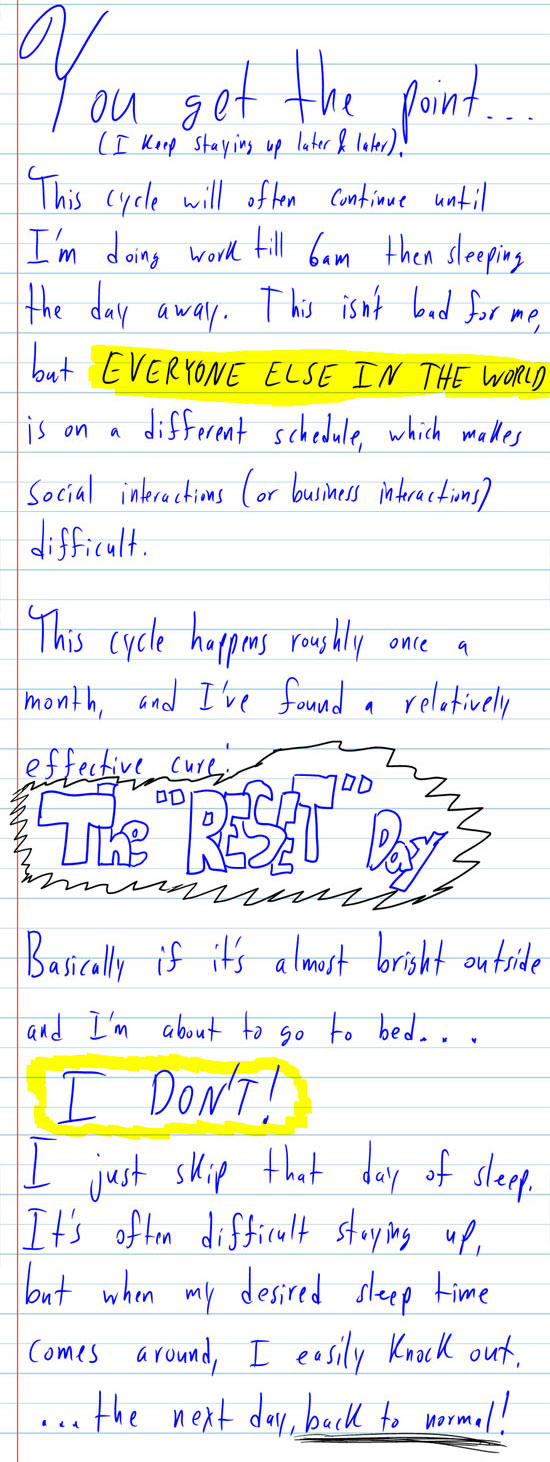 You get the point...
(I keep staying up later & later).
This cycle will often continue until
I'm doing work till 6am then sleeping
the day away. This isn't bad for me,
but EVERYONE ELSE IN THE WORLD
is on a different schedule, which makes
social interactions (or business interactions)
difficult.
This cycle happens roughly once a
month, and I've found a relatively
effective cure:
The "RESET" Day
Basically if it's almost bright outside
and I'm about to go to bed....
I DON'T!
I just skip that day of sleep.
It's often difficult staying up,
but when my desired sleep time
comes around, I easily knock out.
...the next day, back to normal!